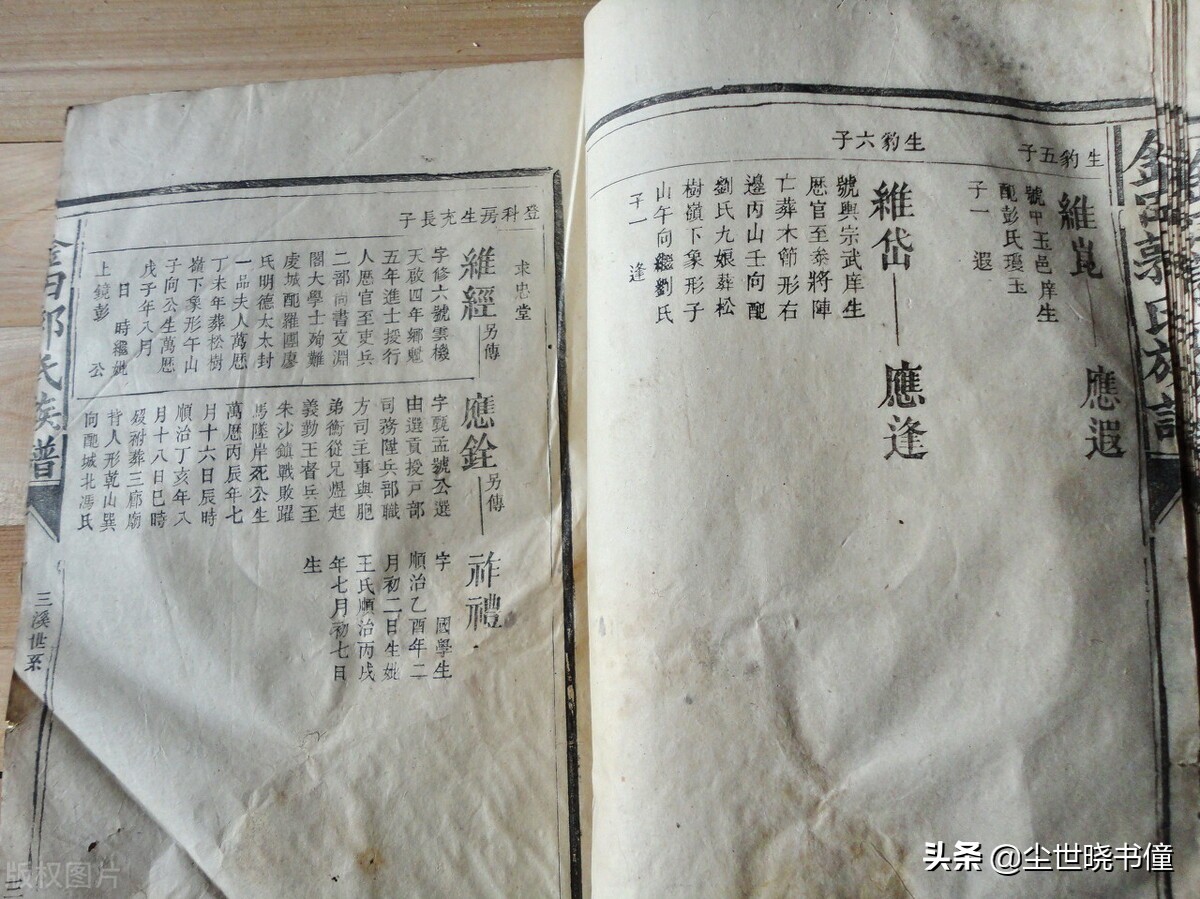 郭氏族譜
生豹五子
維崑
應遐
號中玉邑庠生
配彭氏瓊玉
子一 遐
生豹六子
維岱
應逢
號輿宗武庠生
歷官至泰將陣
亡葬木節形右
邊丙山壬向配
劉氏九娘葬松
樹嶺下象形子
山午向繼劉氏
子一 逢
求忠堂
登科房生克長子
維經另傳
字修六號雲機
天啟四年鄉魁
五年進士授行
人歷官至吏兵
二部尚書文淵
閣大學士殉難
虔城配羅團廖
氏明德太太封
一品夫人萬歷
丁未年葬松樹
嶺下象形午山
子向公生萬歷
戊子年八月
日 時繼妣
上鏡彭 公
應銓另傳
字 孟號公選
由選貢授戸部
司務陞兵部職
方司主事與胞
弟衡從兄煜起
義勤王督兵至
朱沙鎮戰敗躍
馬墜岸死公生
萬歷丙辰年七
月十六日辰時
順治丁亥年八
月十八日巳時
歿祔葬三廊廟
恃人形乾山巽
向配城北馮氏
祚禮
字 國學生
順治乙酉年二
月初二日生妣
王氏順治丙戌
年七月初七日
生
郭氏族譜
三溪世系
版权图片
头条 @尘世晓书僮